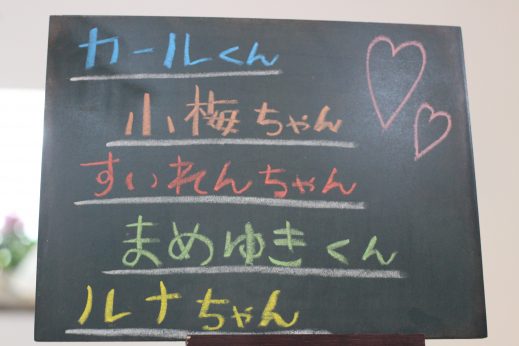 カールくん
小梅ちゃん
すいれんちゃん
まめゆきくん
ルナちゃん